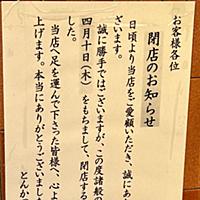 お客様各位
閉店のお知らせ
日頃より当店をご愛顧いただき、誠にあ
ざいます。
誠に勝手ではございますが、この度諸般
四月十日(木)をもちまして、閉店する
した。
当店へ足を運んで下さった皆様へ、心よ
上げます。本当にありがとうございまし
とんか